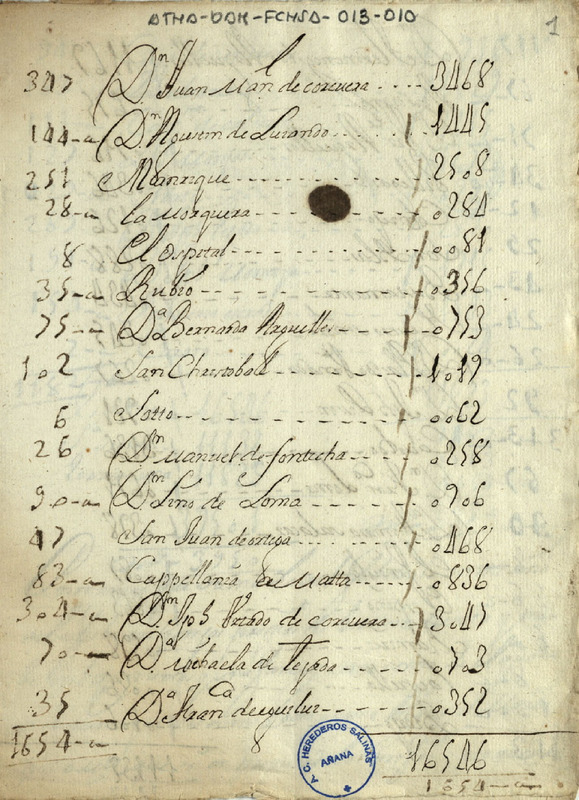 ATHA-DAK-FCHSA-013-010
1
347 Dn Juan Man l de corcuera .... 3468
144-a Dn Agustin de Lurando .... 1445
251 Manrique 2508
28-a la Morquera 0284
8 El Ospital 0081
35-a Rubio 0356
75-a Da Bernarda 0753
102 San Christoball 1019
6 Sotto 0062
26 Dn Manuel de fontecha 0258
90-a Dn Lino de Loma 0906
47 San Juan de ortega 0468
83-a Cappellania de Matta 0836
304-a Dn Jph Urtado de corcuera 3047
70-a Da Michaela de Tejada 0703
35 Da Franca de eguiluz 0352
1654-a 16546
8 1654-a
A. C. HEREDEROS SALINAS
ARANA